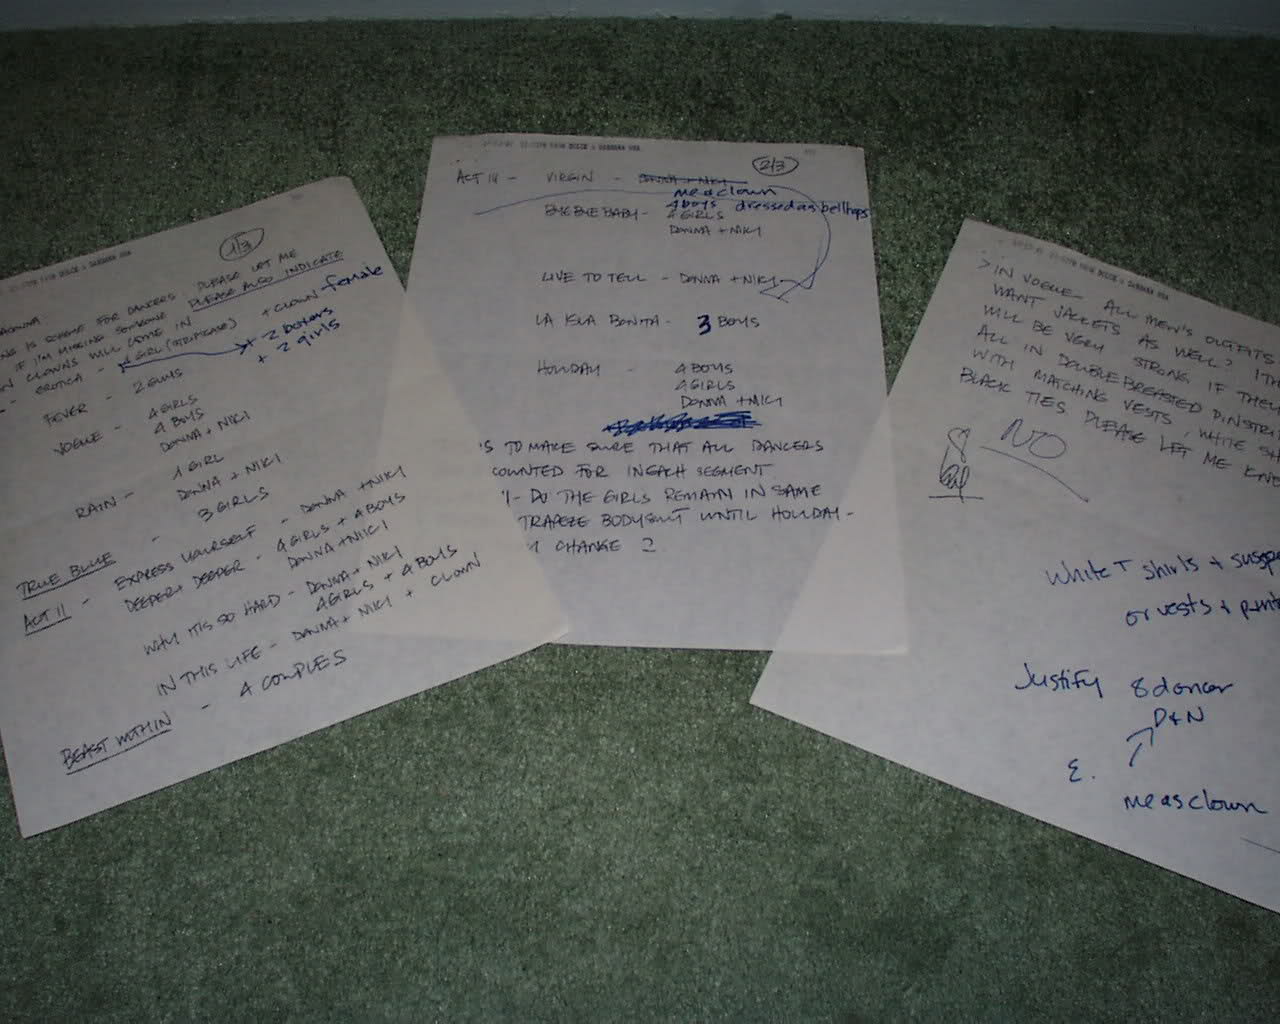 DOLCE & GABBANA USA
1/3
MADONNA
IS SCHEME FOR DANCERS PLEASE LET ME
IF I'M MISSING SOMEONE PLEASE ALSO INDICATE
CLOWNS WILL COME IN
EROTICA - 1 GIRL (STRIPTEASE) + CLOWN female
+ 2 boxers
+ 2 girls
FEVER - 2 GUYS
VOGUE - 4 GIRLS
4 BOYS
DONNA + NIKI
RAIN - 1 GIRL
DONNA + NIKI
TRUE BLUE - 3 GIRLS
ACT II - EXPRESS YOURSELF - DONNA + NIKI
DEEPER + DEEPER - 4 GIRLS + 4 BOYS
DONNA + NIKI
WHY IT'S SO HARD - DONNA + NIKI
4 GIRLS + 4 BOYS
IN THIS LIFE - DONNA + NIKI + CLOWN
BEAST WITHIN - 4 COUPLES
DOLCE & GABBANA USA
2/3
VIRGIN - DONNA + NIKI
me as clown
BYE BYE BABY - 4 boys dressed as bellhops
4 GIRLS
DONNA + NIKI
LIVE TO TELL - DONNA + NIKI
LA ISLA BONITA - 3 BOYS
HOLIDAY - 4 BOYS
4 GIRLS
DONNA + NIKI
'S TO MAKE SURE THAT ALL DANCERS
COUNTED FOR IN EACH SEGMENT
- DO THE GIRLS REMAIN IN SAME
TRAPEZE BODYSUIT UNTIL HOLIDAY -
CHANGE ?
DOLCE & GABBANA USA
> IN VOGUE ALL MEN'S OUTFITS
WANT JACKETS AS WELL? I TH
WILL BE VERY STRONG IF THEY
ALL IN DOUBLE BREASTED PINSTRI
WITH MATCHING VESTS, WHITE SH
BLACK TIES PLEASE LET ME KNO
NO
White T shirts + suspe
or vests + pants
Justify 8 dancer
D + N
E.
me as clown